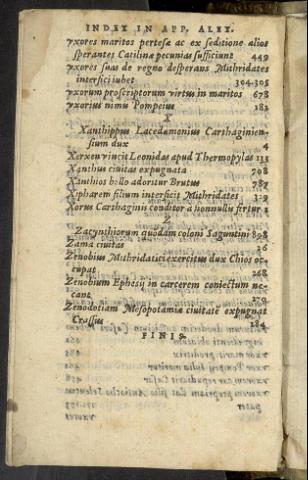 INDEX IN APP. ALEX.
vxores maritos pertesæ ac ex seditione alios
sperantes Catilinæ pecunias sufficiunt 449
vxores suas de regno desperans Mithridates
interfici iubet 304.305
vxorum proscriptorum virtus in maritos 678
vxorius nimis Pompeius 382
X
Xanthippus Lacedæmonius Carthaginien-
sium dux 4
Xerxen vincit Leonidas apud Thermopylas 133
Xanthus ciuitas expugnata 708
Xanthios bello adoritur Brutus 787
Xipharem filium interficit Mithridates 329
Xorus Carthaginis conditor a nonnullis fertur 1
Z
Zacynthiorum quodam coloni Saguntini 898
Zama ciuitas 26
Zenobius Mithridatici exercitus dux Chios oc-
cupat 268
Zenobium Ephesij in carcerem coniectum ne-
cant 270
Zenodotiam Mesopotamiæ ciuitatē expugnat
Crassus 384
FINIS.